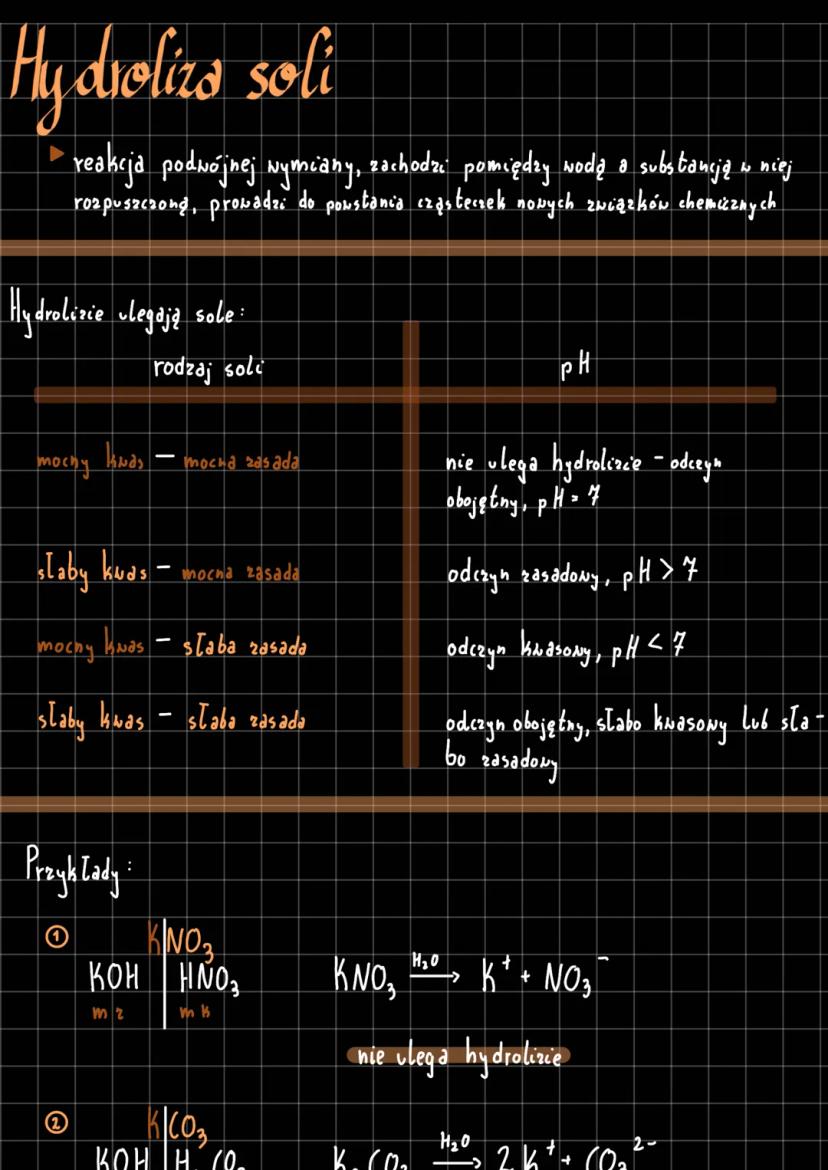 Hydroliza soli
reakcja podwójnej wymiany, zachodzi pomiędzy wodą a substancją w niej
rozpuszczoną, prowadzi do powstania cząsteczek nowych związków chemicznych
Hydrolizie ulegają sole:
rodzaj soli
pH
mocny kwas – mocna zasada
nie ulega hydrolizie – odczyn
obojętny, pH = 7
słaby kwas – mocna zasada
odczyn zasadowy, pH > 7
mocny kwas – słaba zasada
odczyn kwasowy, pH < 7
słaby kwas – słaba zasada
odczyn obojętny, słabo kwasowy lub sła-
bo zasadowy
Przykłady:
① K|NO₃
KOH | HNO₃
mz mk
KNO₃ —H₂O→ K⁺ + NO₃⁻
nie ulega hydrolizie
② K|CO₃
KOH | H₂CO₃
K₂CO₃ —H₂O→ 2K⁺ + CO₃²⁻